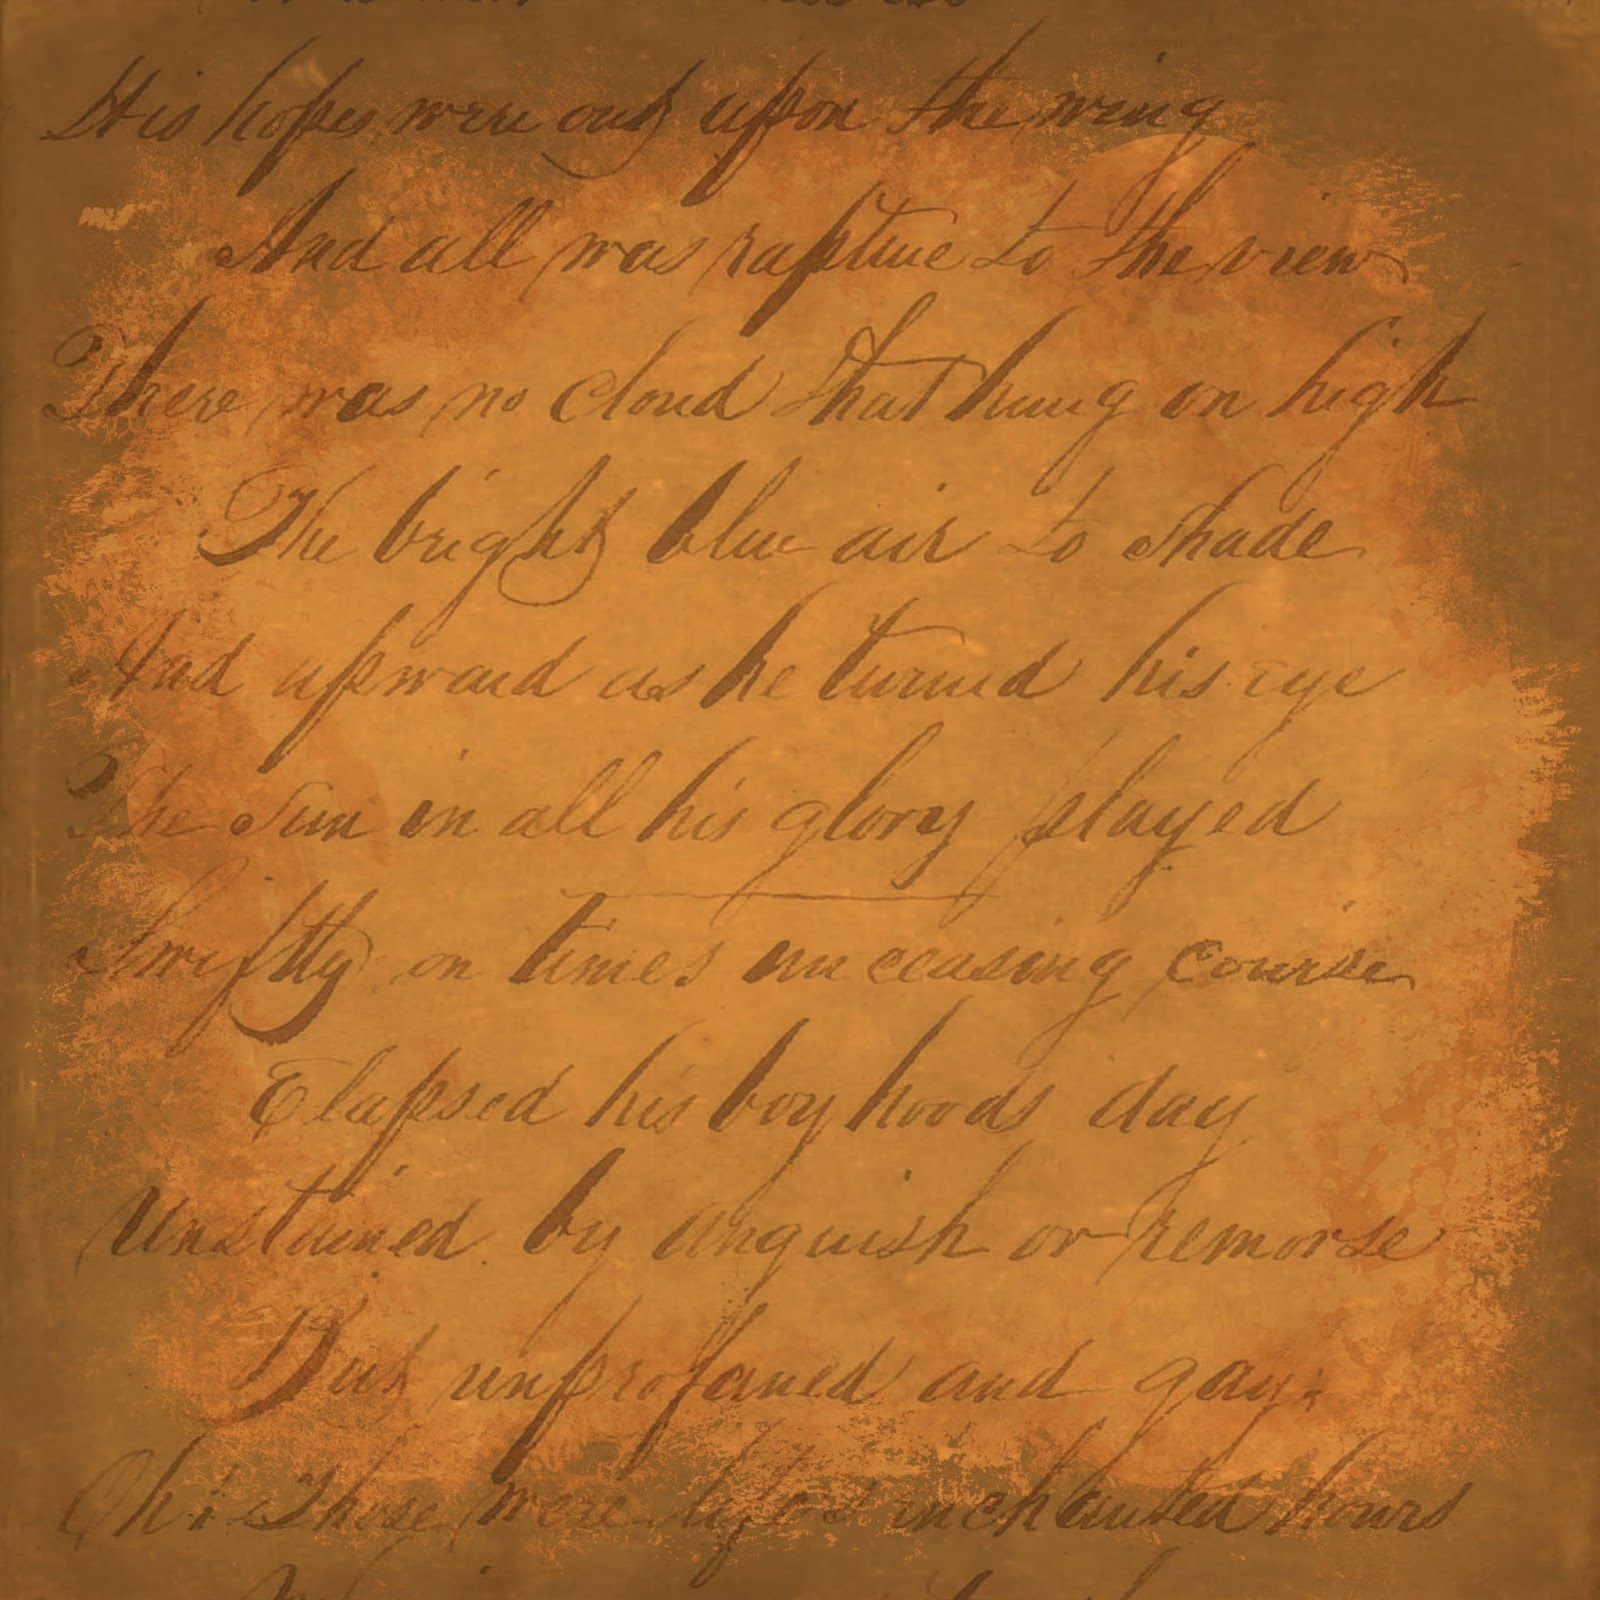 His hopes were out upon the wing
And all was rapture to the view
There was no cloud that hung on high
The bright blue air to shade
And upward as he turned his eye
The Sun in all his glory played
Swiftly on times unceasing course
Elapsed his boy hoods day
Unstained by anguish or remorse
But unprofaned and gay;
Oh! Those were lifes enchanted hours